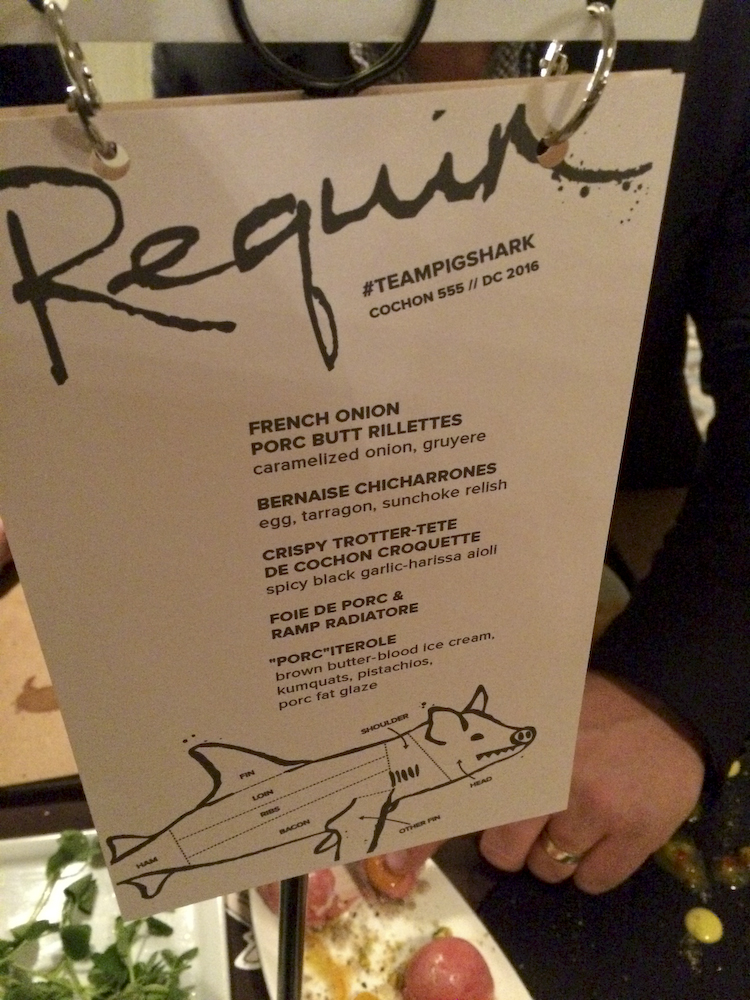 Requin
#TEAMPIGSHARK
COCHON 555 // DC 2016
FRENCH ONION
PORC BUTT RILLETTES
caramelized onion, gruyere
BERNAISE CHICHARRONES
egg, tarragon, sunchoke relish
CRISPY TROTTER-TETE
DE COCHON CROQUETTE
spicy black garlic-harissa aioli
FOIE DE PORC &
RAMP RADIATORE
"PORC"ITEROLE
brown butter-blood ice cream,
kumquats, pistachios,
porc fat glaze
SHOULDER
FIN
LOIN
RIBS
BACON
HAM
HEAD
OTHER FIN